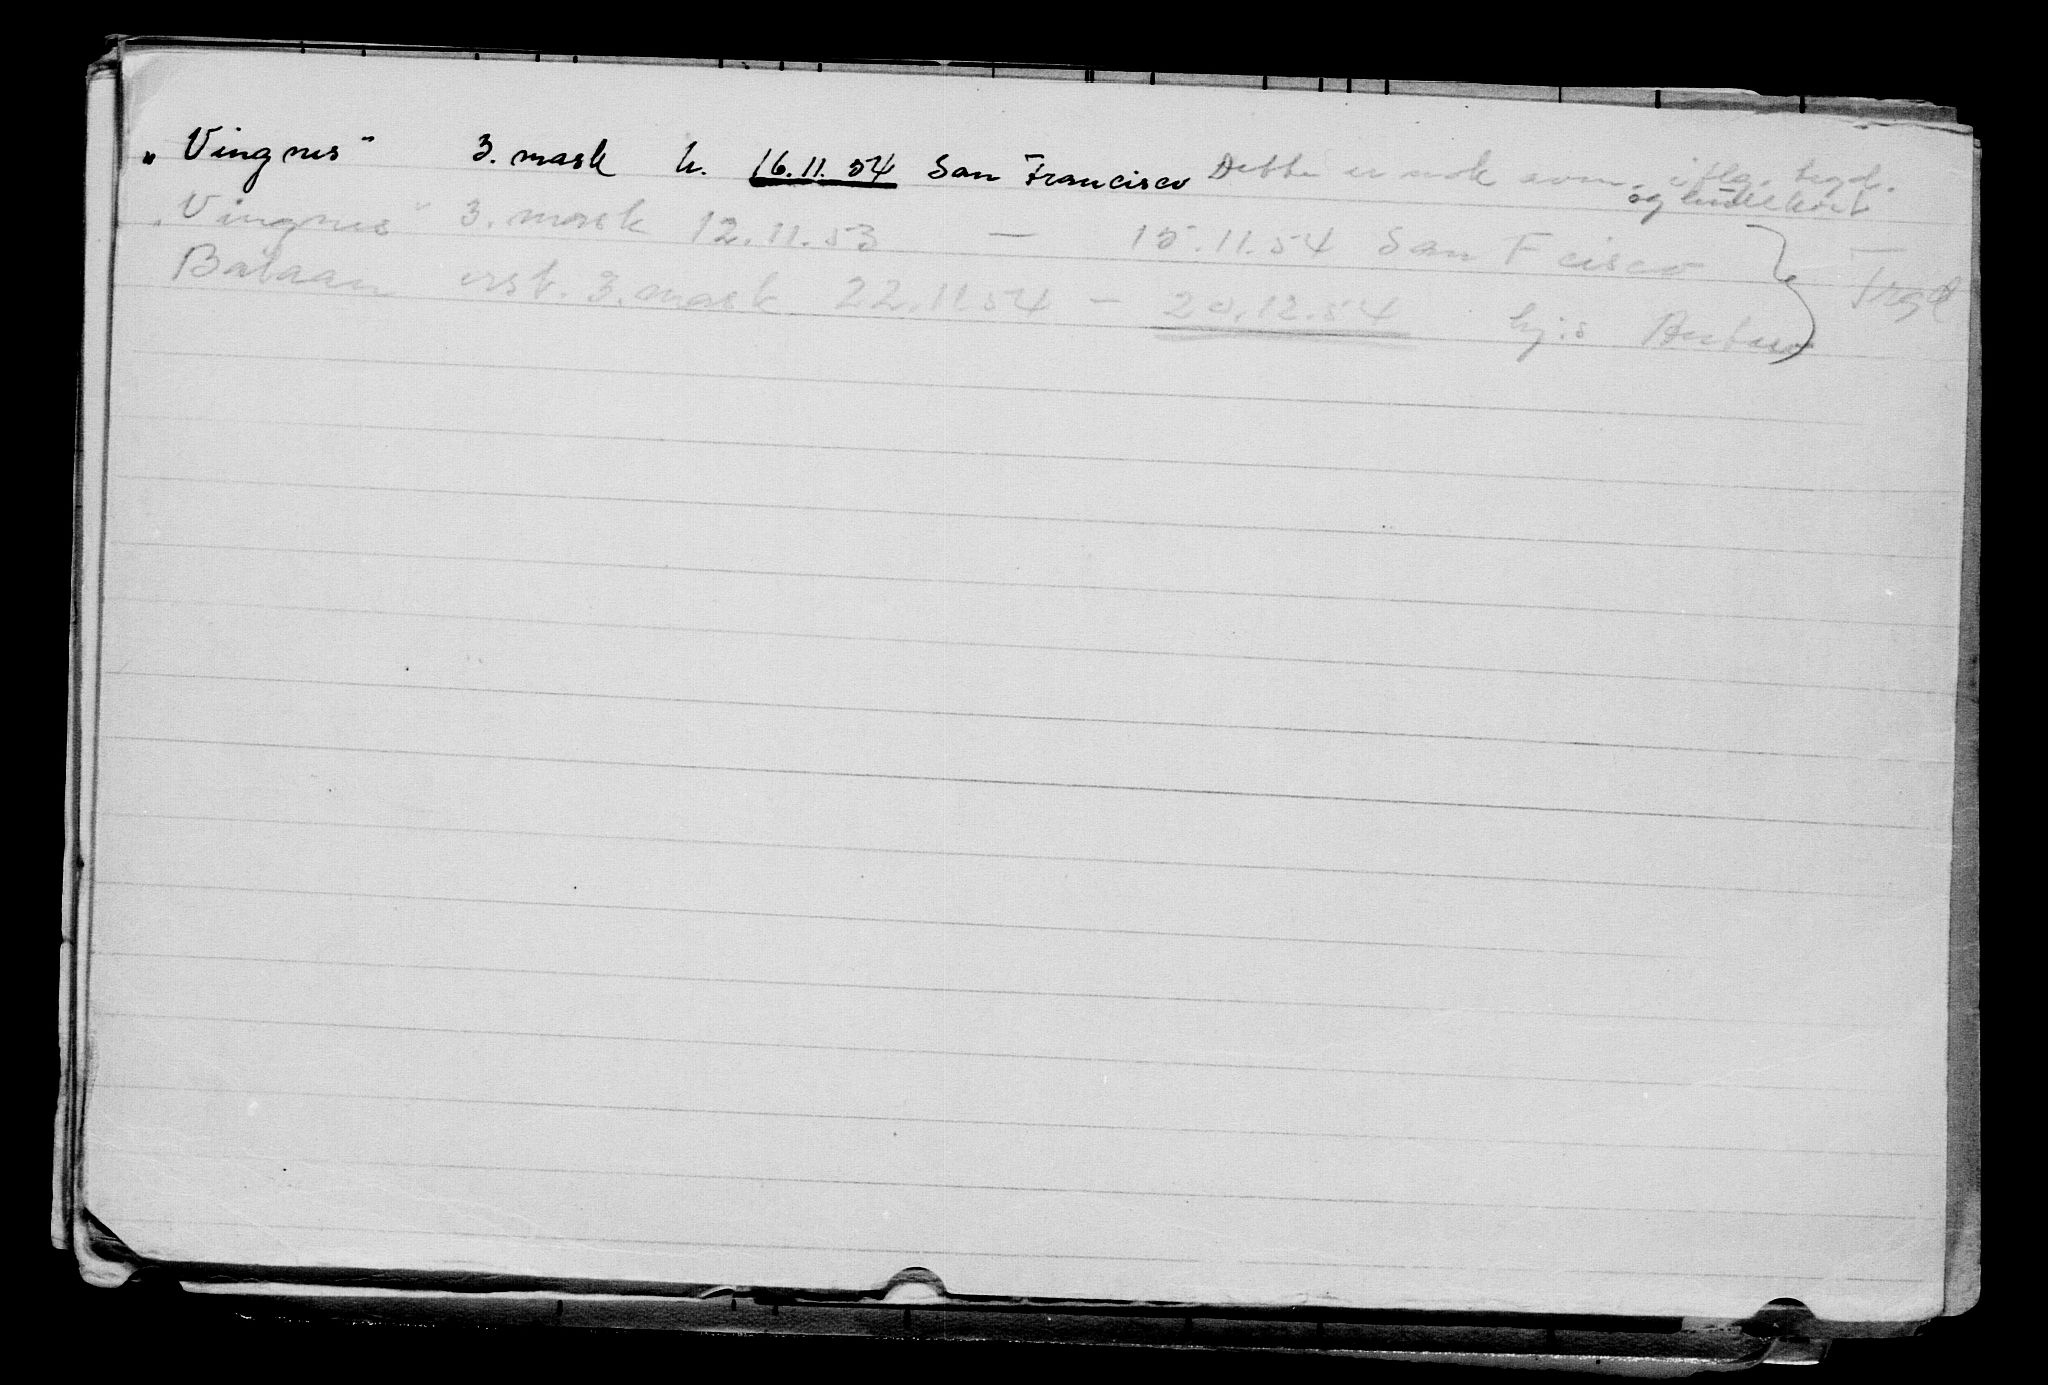 „Vingnes" 3. mask h. 16.11.54 San Francisco Dette er nok som. iflg. trgd.
og hullekort
„Vingnes" 3. mask 12.11.53 — 15.11.54 San Fcisco
Bataan erst. 3. mask 22.11.54 — 20.12.54 hj:s Antw } Trgd